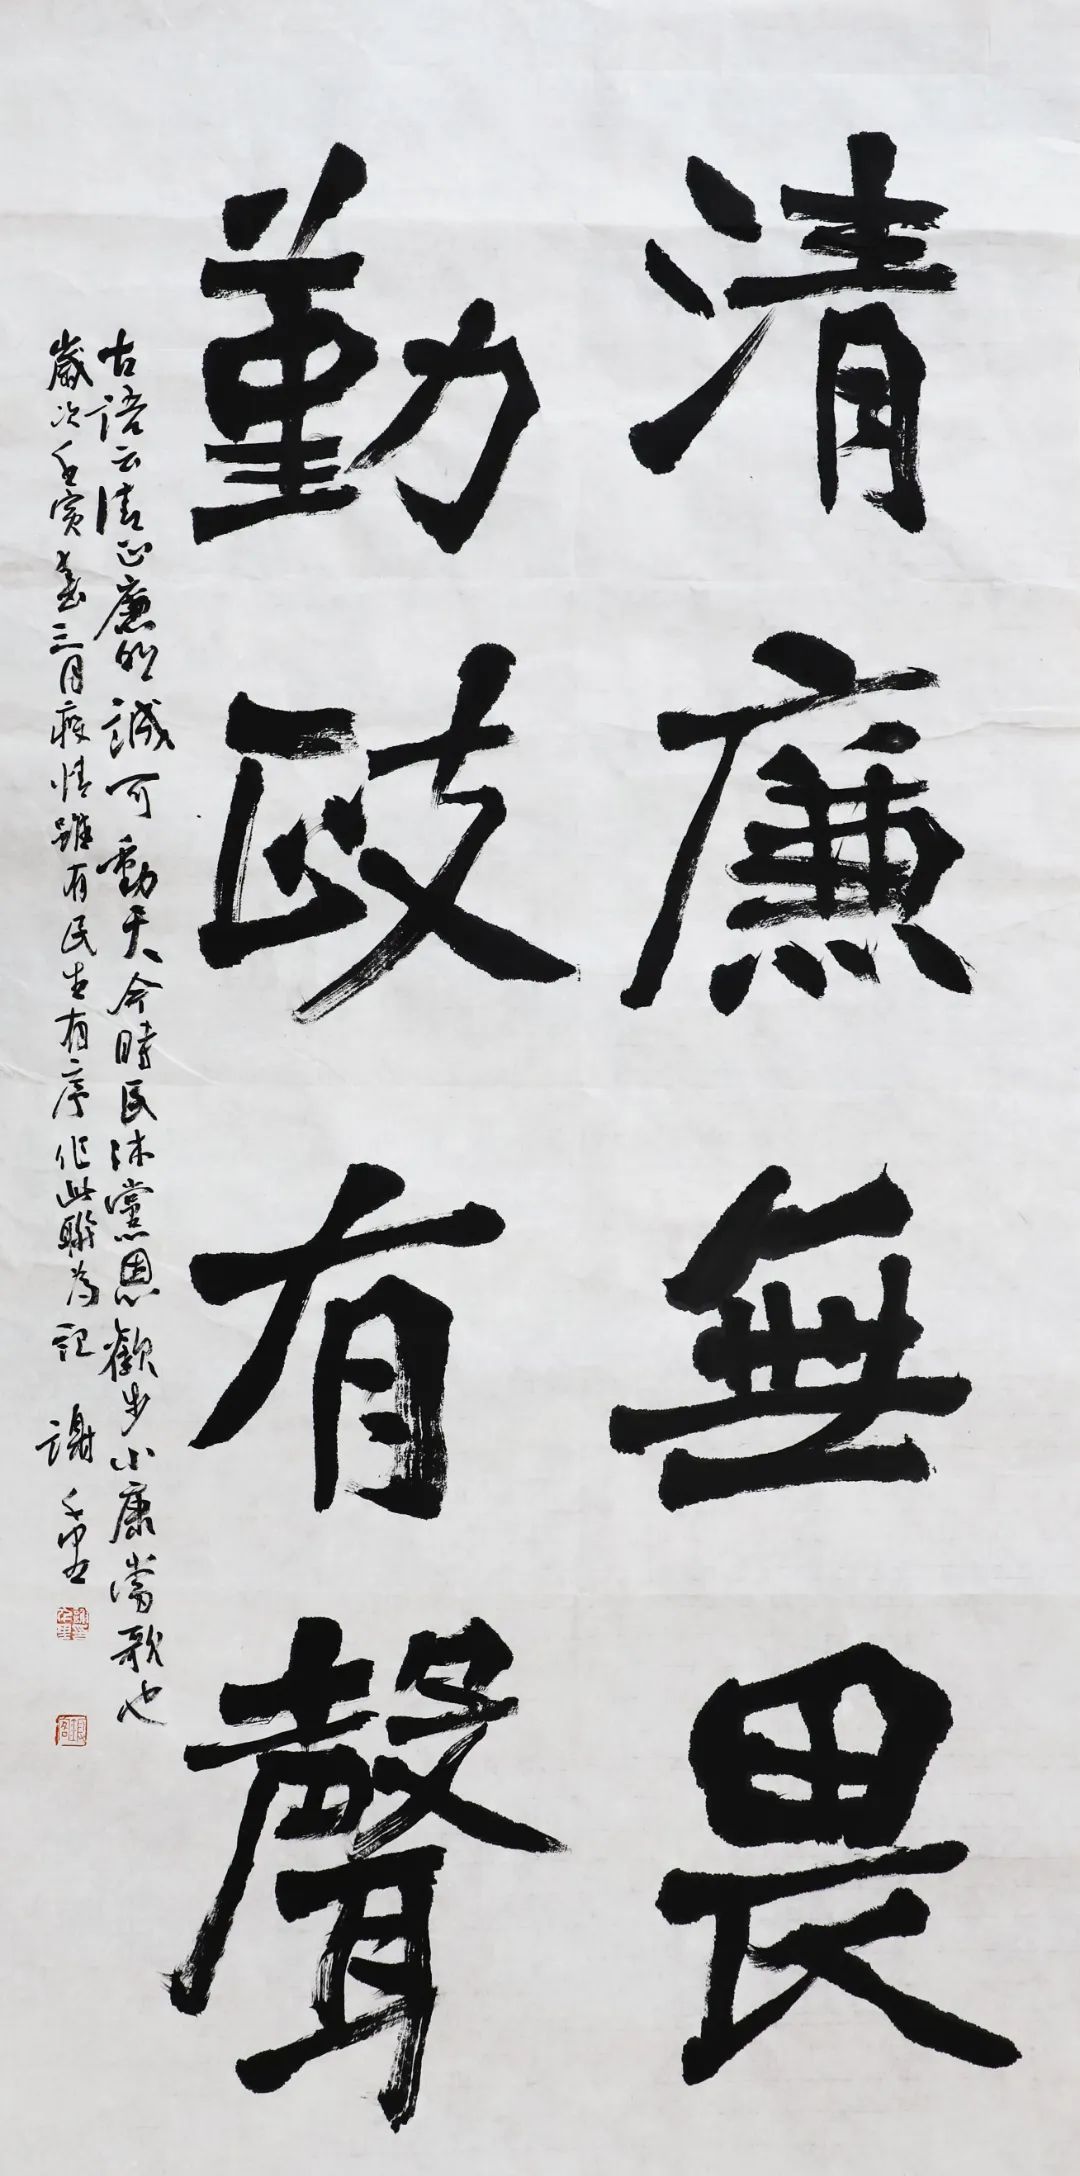 清廉無畏
勤政有聲
古語云清正廉明誠可動天今時民沐黨恩歡步小康當歌也
歲次壬寅春三月疫情雖有民生有序作此聯為記 謝